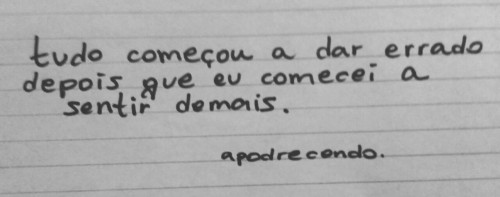 tudo começou a dar errado
depois que eu comecei a
sentir demais.
apodrecendo.